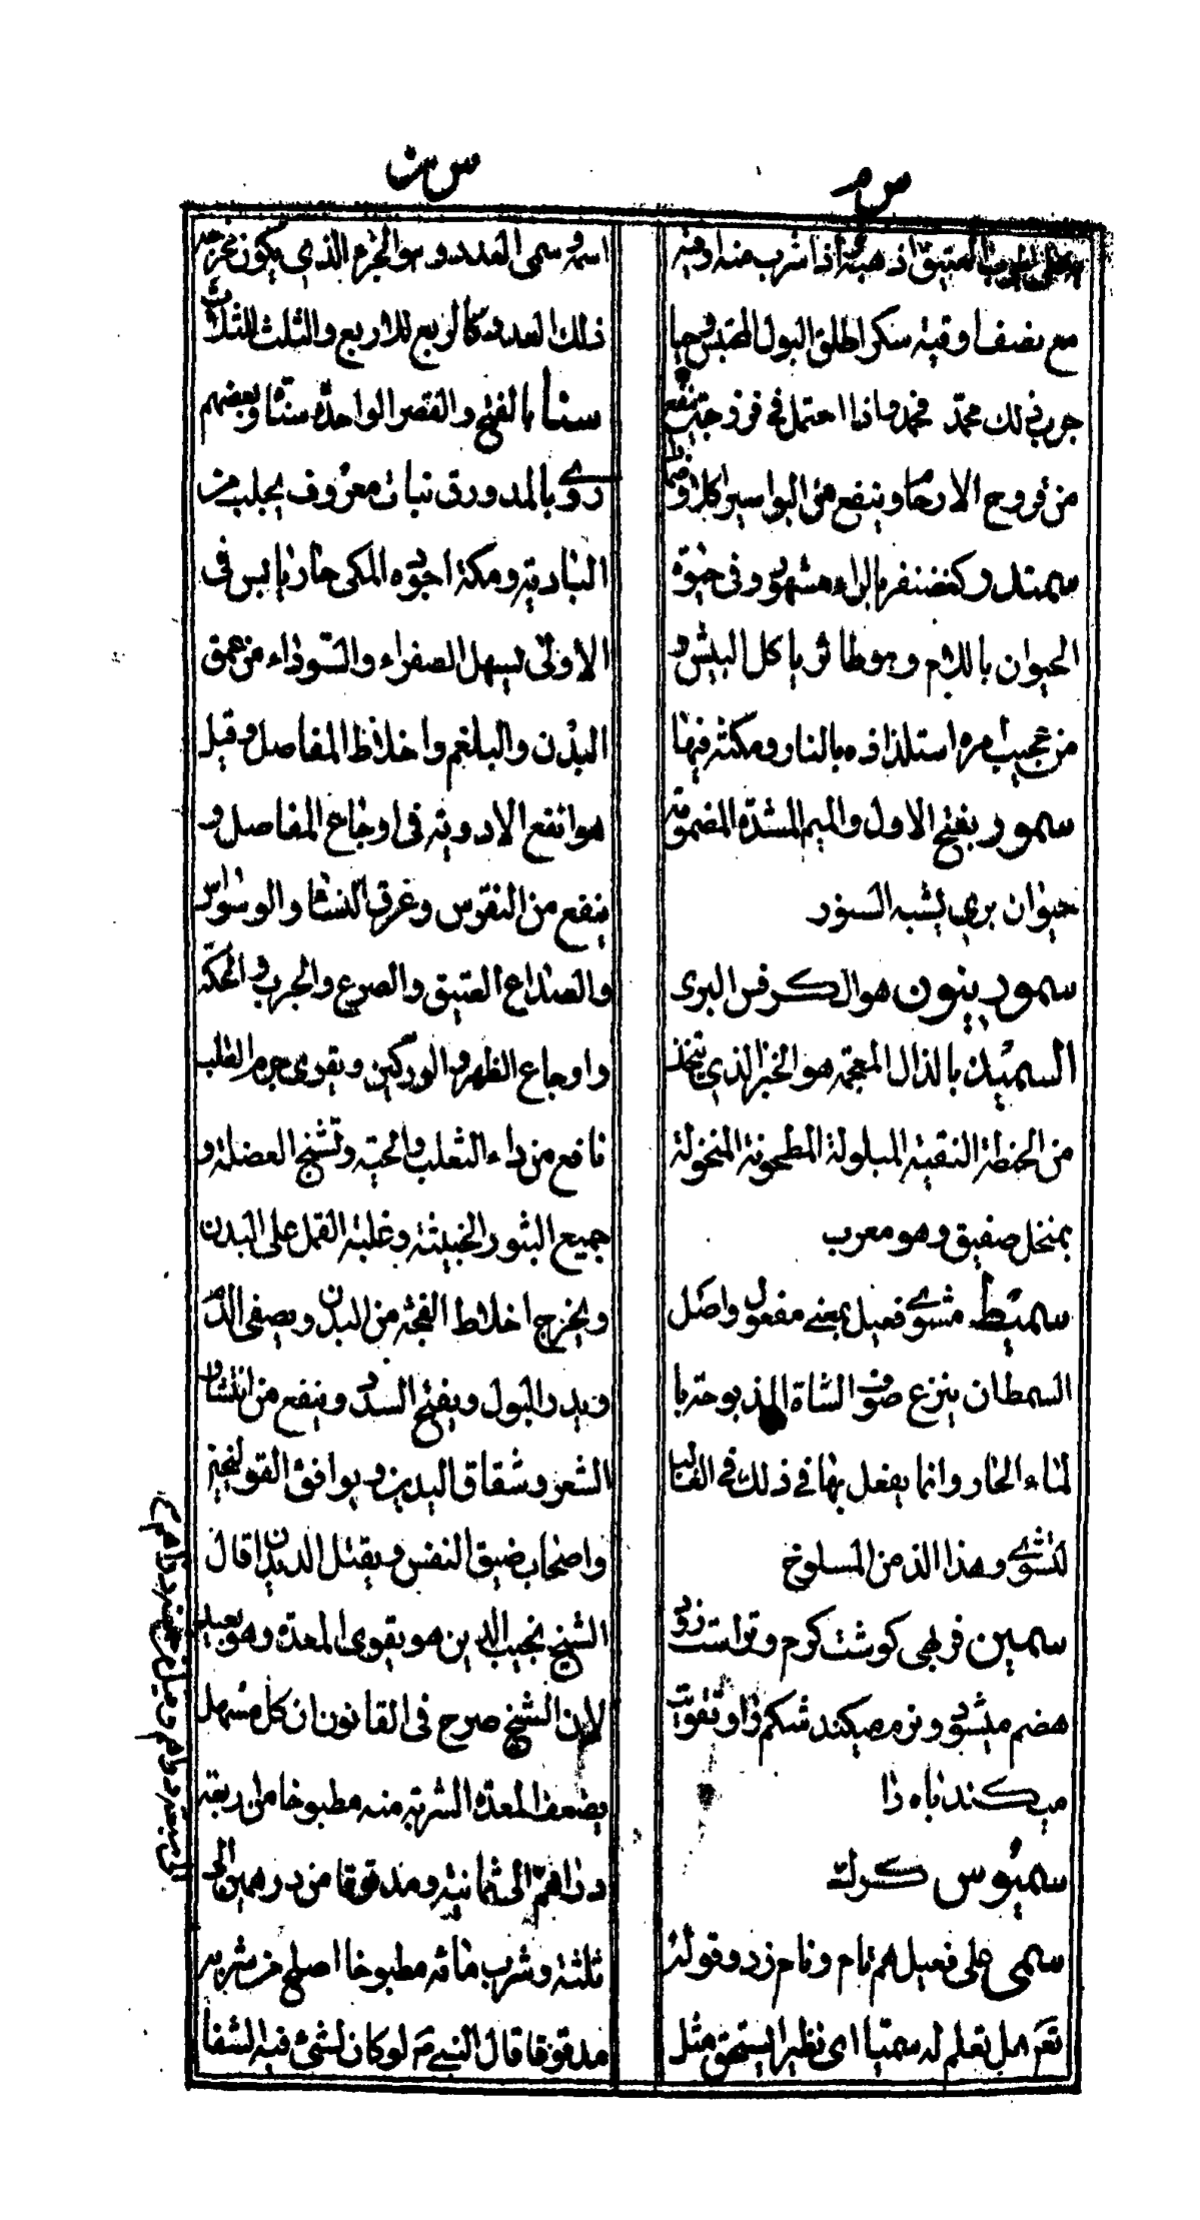 س م
العتيق اذهبه اذا شرب منه اوقية
مع نصف اوقية سكر اطلق البول المحتبس
جرب ذلك محمد فحمد واذا احتمل فى فرزجة نفع
من قروح الارحام وينفع من البواسير اكلا وضمادا
سمندر كغضنفر بالراء مشهور وفى حيوة
الحيوان باللام وهو طائر ياكل البيش و
من عجيب امره استلذاذه بالنار ومكثه فيها
سمور بفتح الاول والميم المشددة المضمومة
حيوان برى يشبه السنور
سمورينون هو الكرفس البرى
السميذ بالذال المعجمة هو الخبز الذى يتخذ
من الحنطة النقية المبلولة المطحونة المنخولة
بمنخل صفيق وهو معرب
سميط مشوى فعيل بمعنى مفعول واصل
السمط ان ينزع صوف الشاة المذبوحة با
لماء الحار وانما يفعل بها فى ذلك فى الغالب
لتشوى وهذا الذ من المسلوخ
سمين فربهى كوشت كرم وتر است زود
هضم ميشود ونرم ميكند شكم را وتقويت
ميكند باه را
سميوس كرك
سمى على فعيل هم نام ونام زد وقوله
تعم هل تعلم له سميا اى نظيرا يستحق مثل
س ن
اسمه وسمى العدد وهو الجزء الذى يكون مخرجه
ذلك العدد كالربع للاربع والثلث للثلاث
سنا بالفتح والقصر الواحدة سناة وبعضهم
روى بالمد ورق نبات معروف يجلب من
البادية ومكة اجوده المكى حار يابس فى
الاولى يسهل الصفراء والسوداء من عمق
البدن والبلغم واخلاط المفاصل وقيل
هو انفع الادوية فى اوجاع المفاصل و
ينفع من النقرس وعرق النسا والوسواس
والصداع العتيق والصرع والجرب والحكة
واوجاع الظهر والوركين ويقوى جرم القلب
نافع من داء الثعلب والحية وتشنج العضلة و
جميع البثور الخبيثة وغلبة القمل على البدن
ويخرج اخلاط الفجة من البدن ويصفى الدم
ويدر البول ويفتح السدد وينفع من انتشار
الشعر وشقاق اليدين ويوافق القولنجين
واصحاب ضيق النفس ويقتل الديدان قال
الشيخ نجيب الدين هو يقوى المعدة وهو بعيد
لان الشيخ صرح فى القانون ان كل مسهل
يضعف المعدة الشربة منه مطبوخا من اربعة
دراهم الى ثمانية ومدقوقا من درهمين الى
ثلثة وشرب مائه مطبوخا اصلح من شربه
مدقوقا قال النبى ص لو كان لشئ فيه الشفا